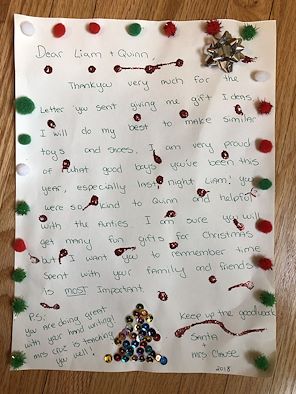 Dear Liam + Quinn,
Thankyou very much for the
Letter you sent giving me gift Ideas
I will do my best to make similar
toys and shoes. I am very proud
of what good boys you've been this
year, especially last night Liam! you
were so kind to Quinn and helpful
with the Anties. I am sure you will
get many fun gifts for Christmas
but I want you to remember time
Spent with your family and friends
is MOST Important.
P.S.
you are doing great
with your hand writing!
mrs cruz is teaching
you well!
Keep up the goodwork
Santa
+
mrs Clause
2018